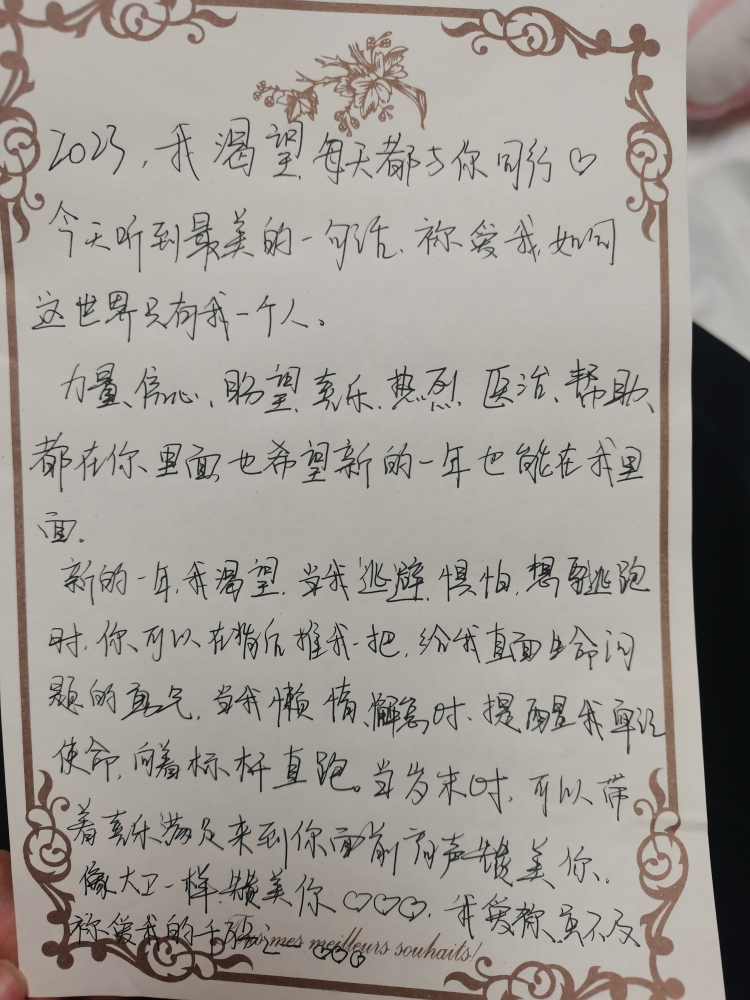 2023，我渴望每天都与你同行♡
今天听到最美的一句话，祢爱我，如同
这世界只有我一个人。
力量、信心、盼望、喜乐、热烈、医治、帮助、
都在你里面，也希望新的一年也能在我里
面。
新的一年，我渴望，当我逃避，惧怕，想要逃跑
时，你可以在背后推我一把，给我直面生命问
题的勇气，当我懒惰、懈怠时，提醒我
使命，向着标杆直跑。当岁末时，可以带
着喜乐满足来到你面前，声赞美你，
像大卫一样赞美你♡♡♡，我爱祢，虽不及
祢爱我的千 之一 ♡♡♡
mes meilleurs souhaits!